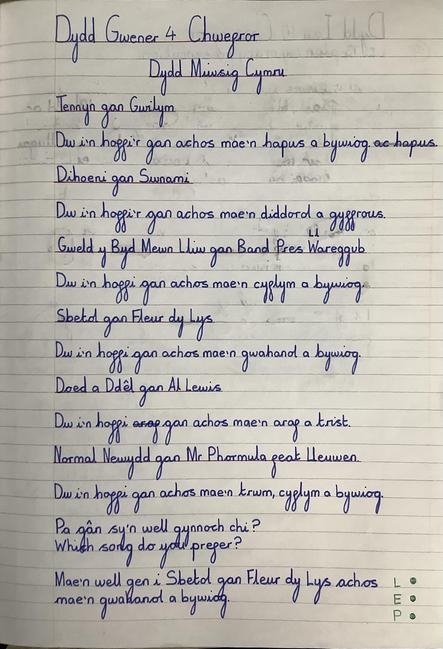 Dydd Gwener 4 Chwefror
Dydd Miwsig Cymru
Tennyn gan Gwilym
Dw i'n hoffi'r gan achos mae'n hapus a bywiog ac hapus.
Dihoeni gan Swnami
Dw i'n hoffi'r gan achos mae'n diddord a gyffrous.
Gweld y Byd Mewn Lliw gan Band Pres Llareggub
Dw i'n hoffi gan achos mae'n cyflym a bywiog.
Sbectol gan Fleur dy Lys
Dw i'n hoffi gan achos mae'n gwahanol a bywiog.
Doed a Ddêl gan Al Lewis
Dw i'n hoffi araf gan achos mae'n araf a trist.
Normal Newydd gan Mr Phormula feat Lleuwen
Dw i'n hoffi gan achos mae'n trwm, cyflym a bywiog.
Pa gân sy'n well gynnoch chi?
Which song do you prefer?
Mae'n well gen i Sbectol gan Fleur dy Lys achos
mae'n gwahanol a bywiog.
L
E
P